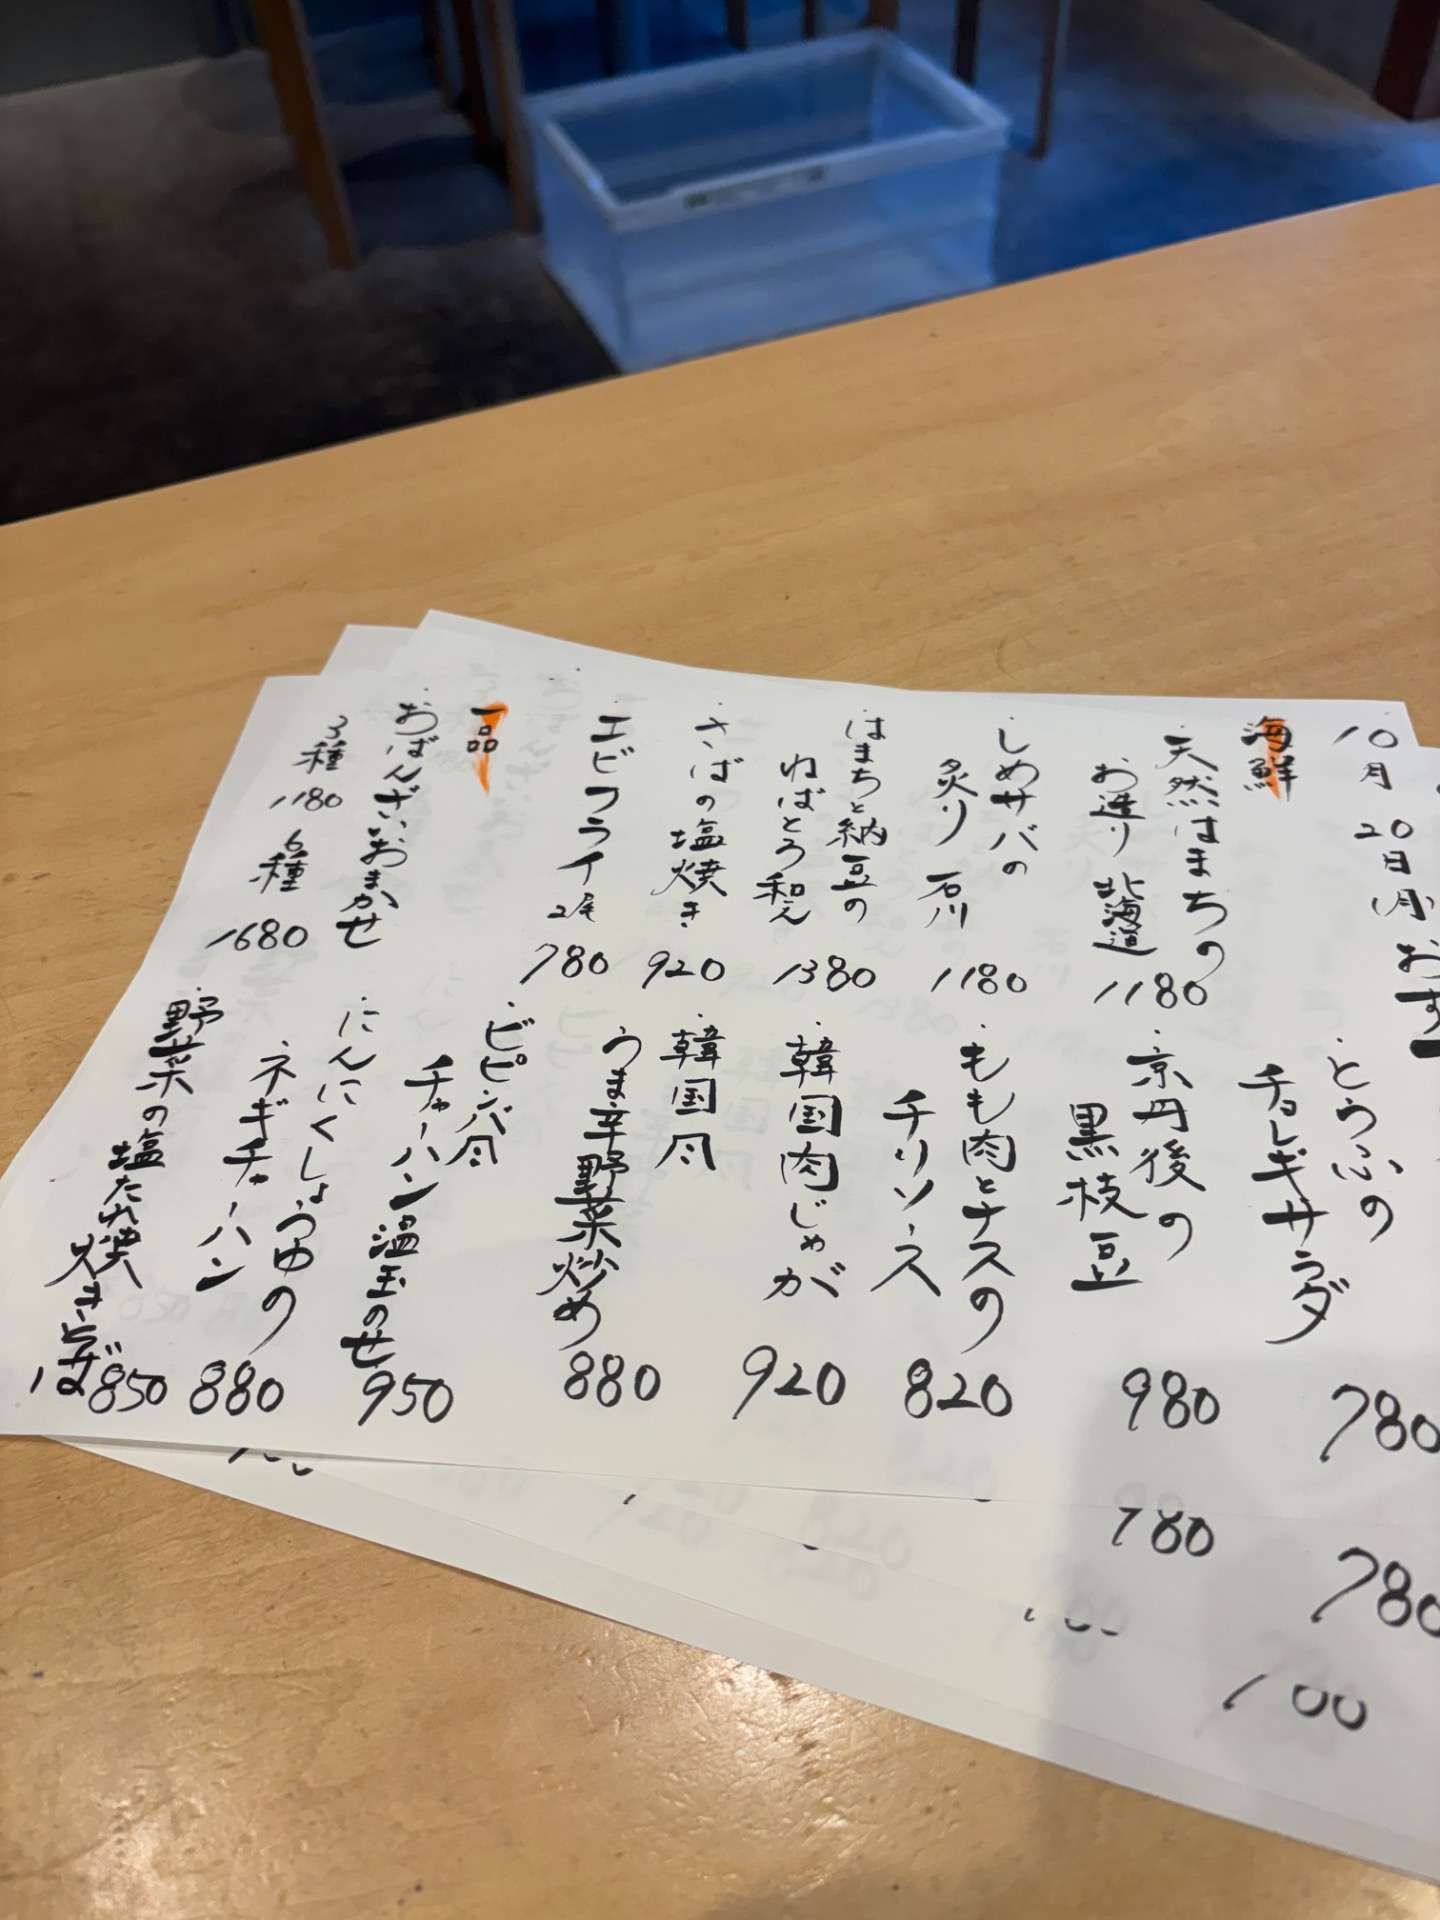 10月20日(月)おす
海鮮
・天然はまちの
お造り 北海道
1180
・しめサバの
炙り 石川
1180
・はまちと納豆の
ねばとろ和え
1380
・さばの塩焼き
920
・エビフライ2尾
780
一品
・おばんざいおまかせ
3種
1180
6種
1680
・とうふの
チョレギサラダ
780
・京丹後の
黒枝豆
980
・もも肉とナスの
チリソース
820
・韓国肉じゃが
920
・韓国風
うま辛野菜炒め
880
・ビビンバ風
チャーハン温玉のせ
950
・にんにくしょうゆの
ネギチャーハン
880
・野菜の塩たれ焼きそば
850
780
780